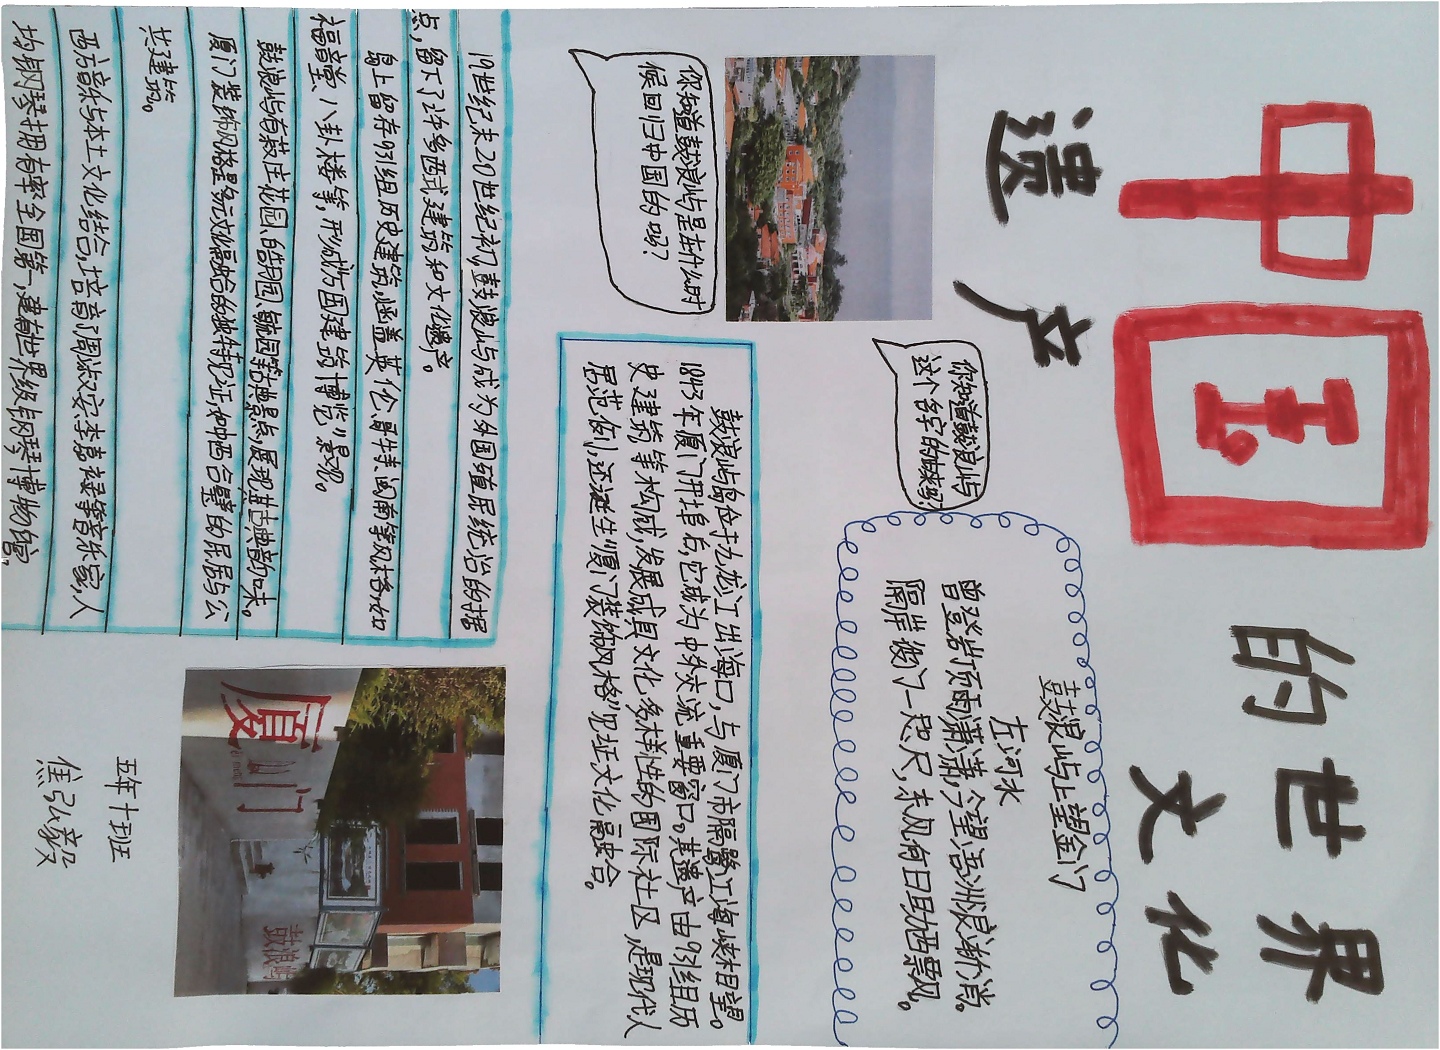 中国的世界
遗产 文化
你知道鼓浪屿是在什么时
候回归中国的吗？
你知道鼓浪屿
这个名字的由来吗？
鼓浪屿上望金门
左河水
曾登岩顶雨潇潇，今望浯洲浪渐消。
隔岸彼门一咫尺，未见何日马栖飘风。
鼓浪屿岛位于九龙江出海口，与厦门市隔鹭江海峡相望。
1843年厦门开埠后，它成为中外交流重要窗口。其遗产由931组历
史建筑等构成，发展成具文化多样性的国际社区，是现代人
居范例，还诞生“厦门装饰风格”见证文化融合。
19世纪末20世纪初，鼓浪屿成为外国殖民统治的据
点，留下了许多西式建筑和文化遗产。
岛上留存931组历史建筑，涵盖英伦、哥特、闽南等风格，如
福音堂、八卦楼等，形成“万国建筑博览”景观。
鼓浪屿有菽庄花园、皓月园、毓园等经典景点，展现其古典韵味。
厦门装饰风格是多元文化融合的独特见证，如中西合璧的民居与公
共建筑。
西方音乐与本土文化结合，培育了周淑安、李嘉禄等音乐家，人
均钢琴拥有率全国第一，建有世界级钢琴博物馆。
厦门
鼓浪屿
五年十班
焦弘毅